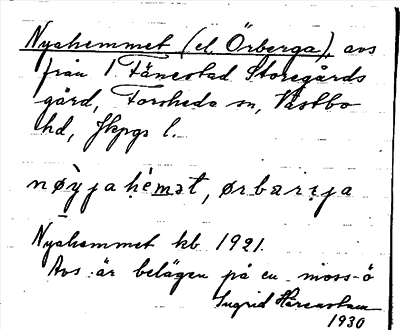 Nyahemmet (el. Örberga), avs
från 1 Fänestad Storegårds
gård, Forsheda sn, Västbo
hd, Jkpgs l.
nøỳjahémət, ørbærɪja
Nyahemmet kb 1921.
Avs. är belägen på en moss-ö
Ingrid
1930